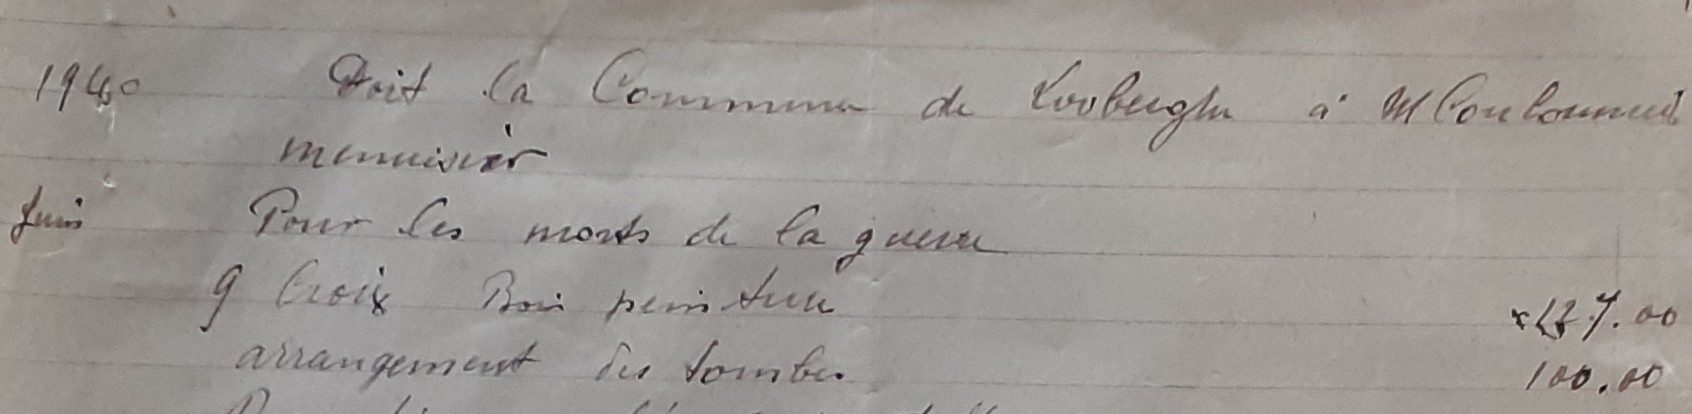 1940 Doit la Commune de Looberghe à M Coulommeil
menuisier
Juin Pour les morts de la guerre
9 Croix Bois peinture
arrangement des tombes 100.00